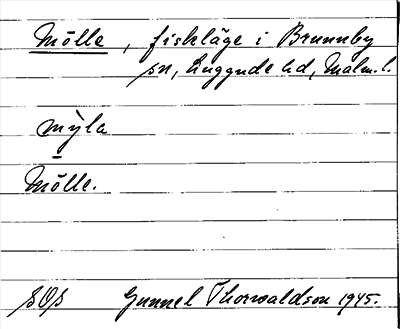 Mölle, fiskläge i Brunnby
sn, Luggude hd, Malm. l.
mỳla
Mölle.
SOS Gunnel Thorwaldson 1945.